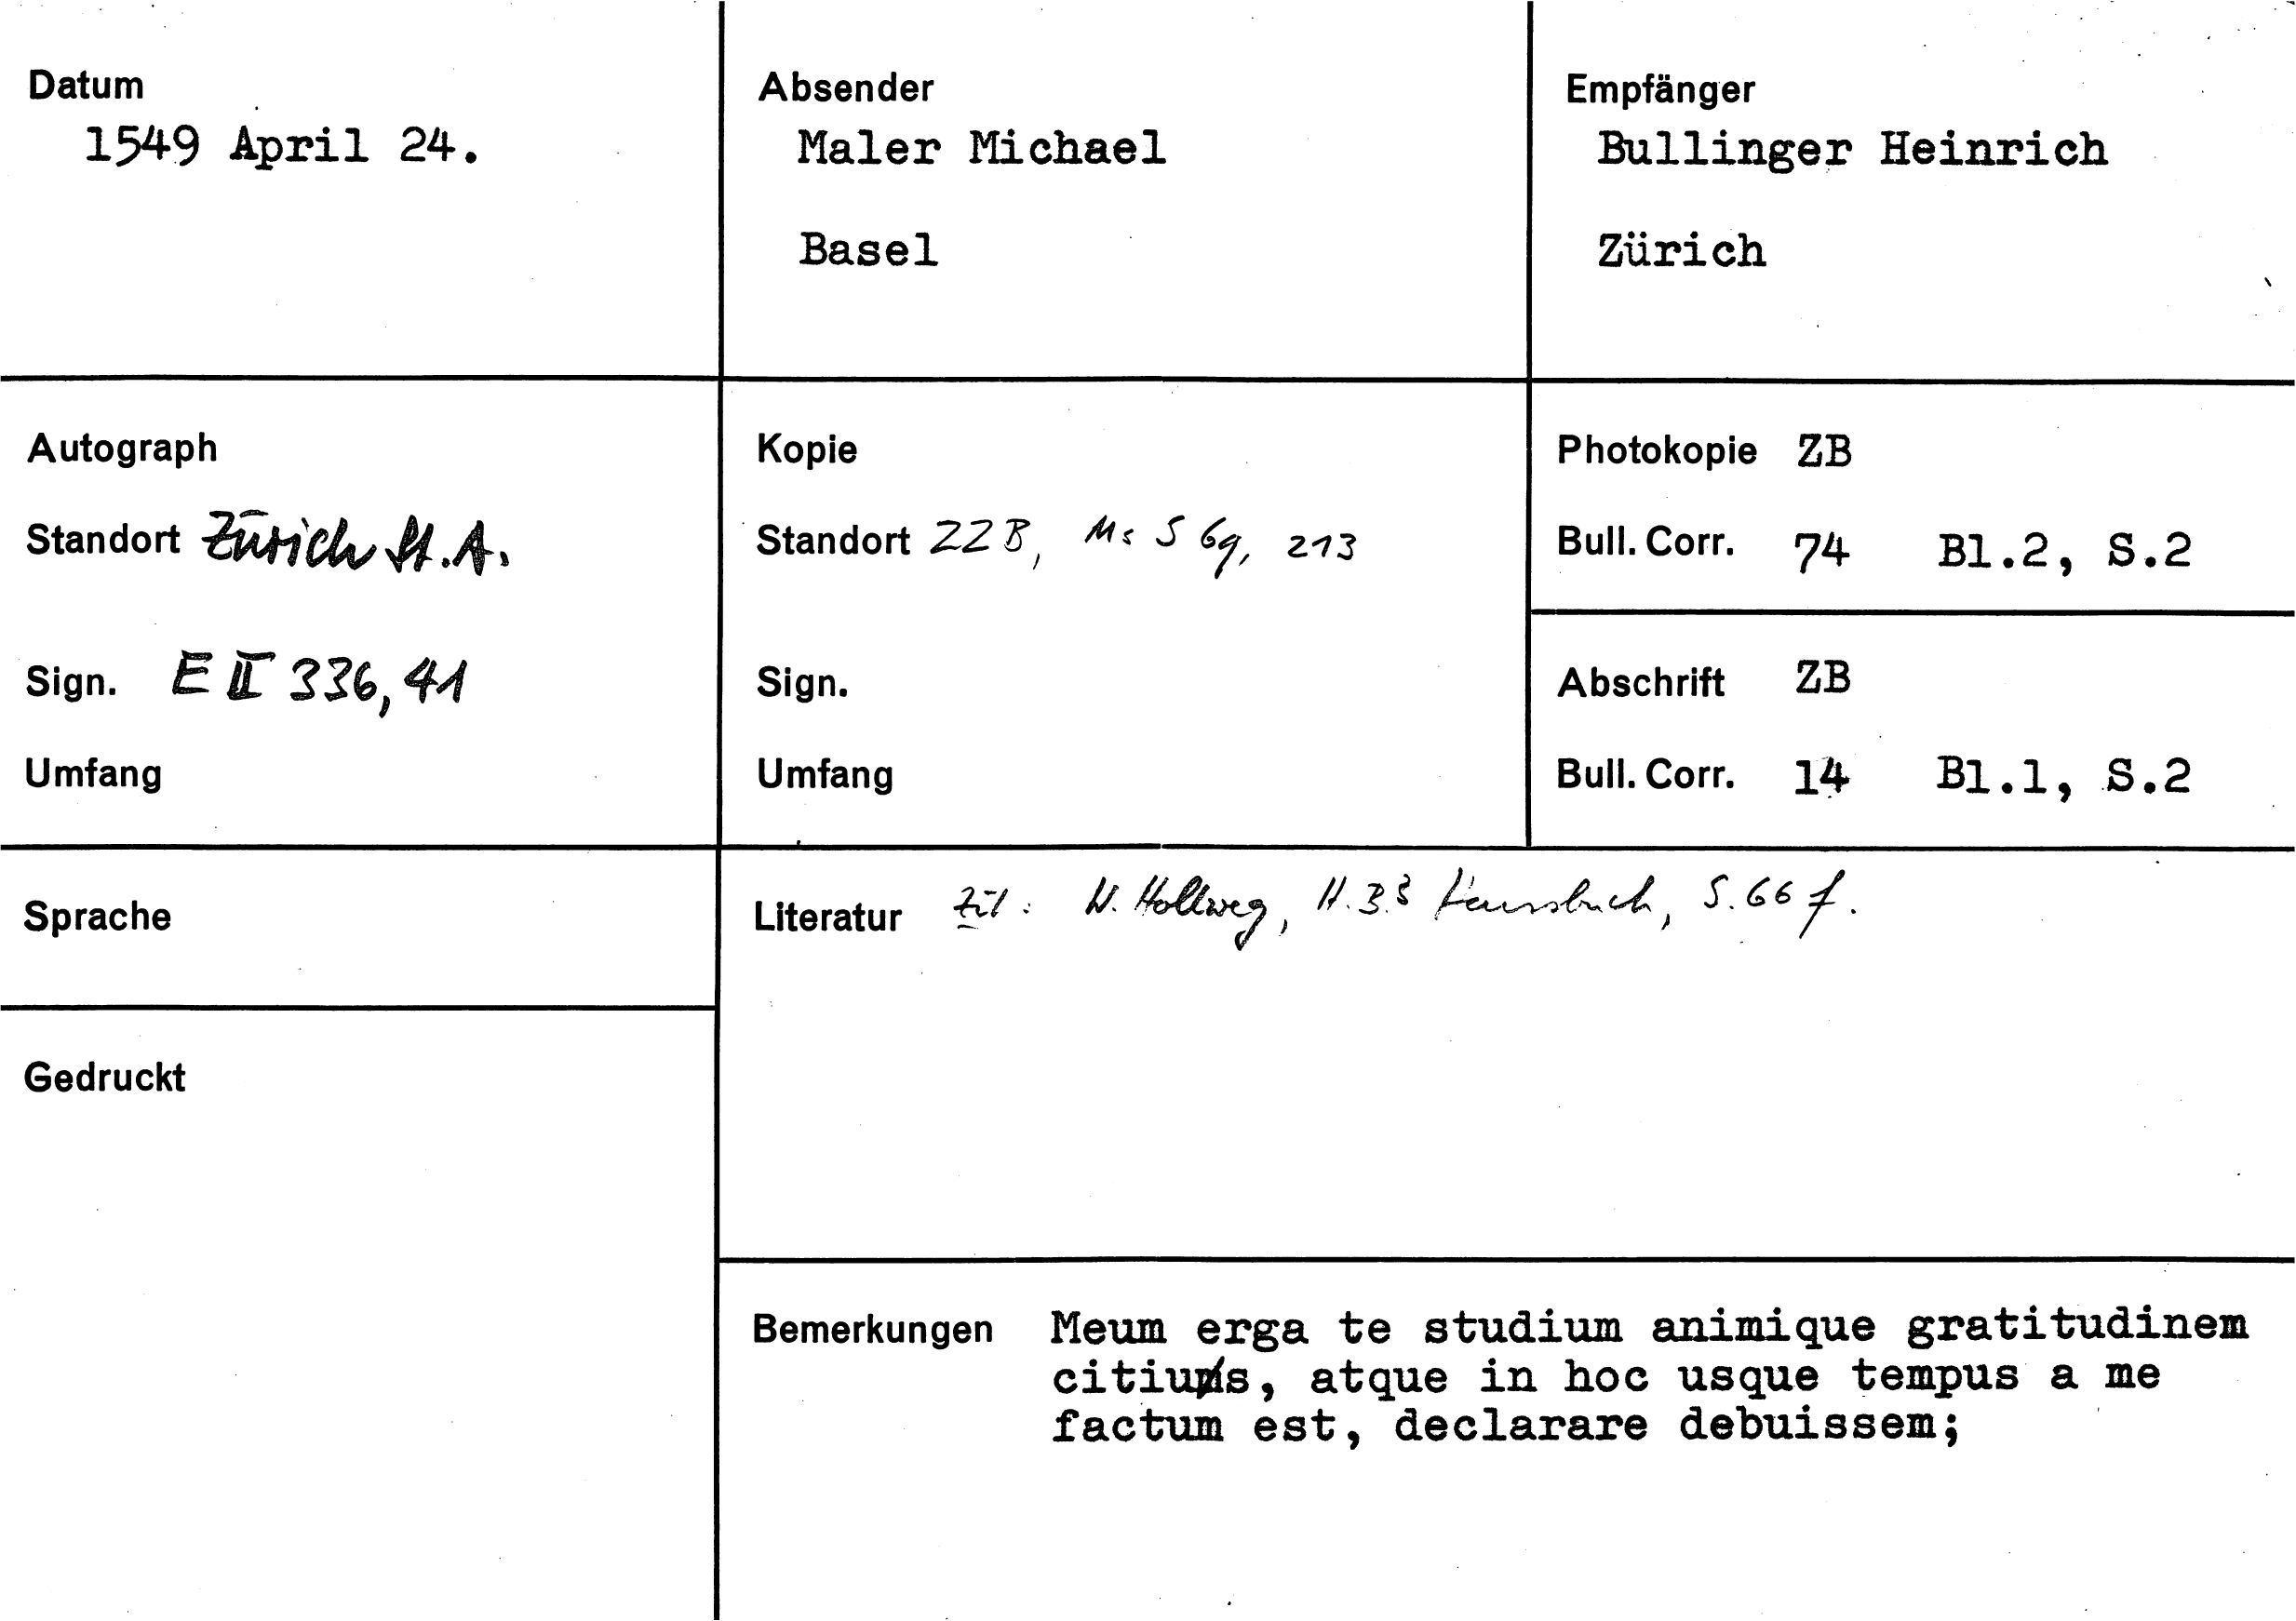 Datum
1549 April 24.
Absender
Maler Michael
Basel
Empfänger
Bullinger Heinrich
Zürich
Autograph
Standort Zürich St.A.
Sign. E II 336,41
Umfang
Kopie
Standort ZZB, Ms S 69, 213
Sign.
Umfang
Photokopie ZB
Bull. Corr. 74 Bl.2, S.2
Abschrift ZB
Bull. Corr. 14 Bl.1, S.2
Sprache
Gedruckt
Literatur zit: W. Hollweg, H.B.s Hausbuch, S.66 f.
Bemerkungen Meum erga te studium animique gratitudinem
citius, atque in hoc usque tempus a me
factum est, declarare debuissem;